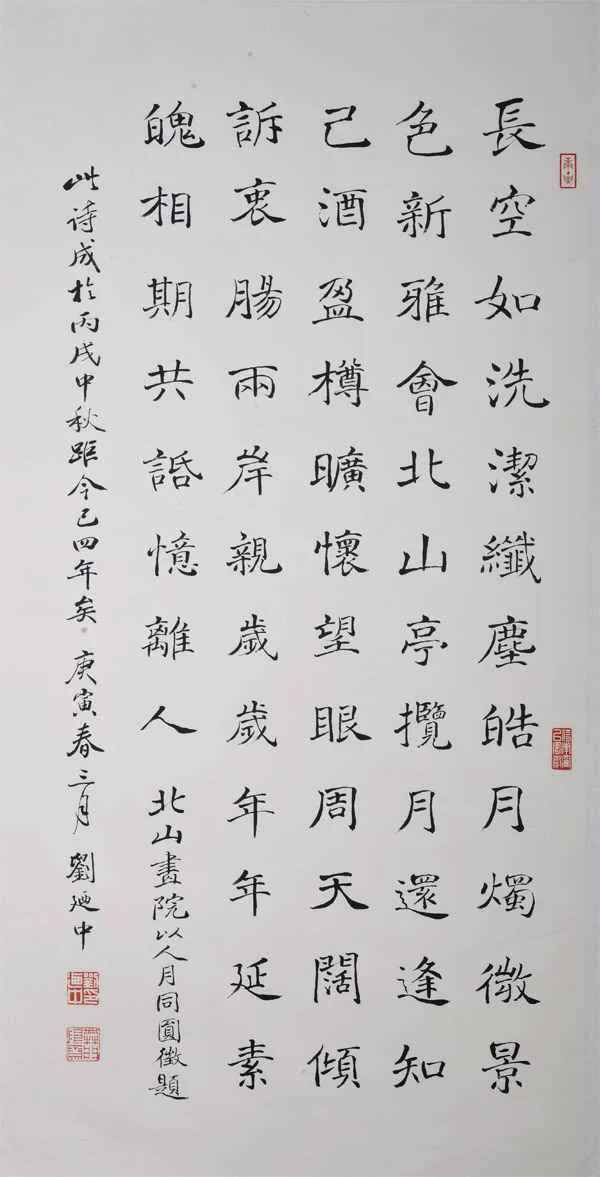 長空如洗潔纖塵皓月燭微景
色新雅會北山亭攬月還逢知
己酒盈樽曠懷望眼周天闊傾
訴衷腸兩岸親歲歲年年延素
魄相期共話憶離人 北山畫院以人月同圓徵題
此詩成於丙戌中秋距今已四年矣 庚寅春三月 劉迺中